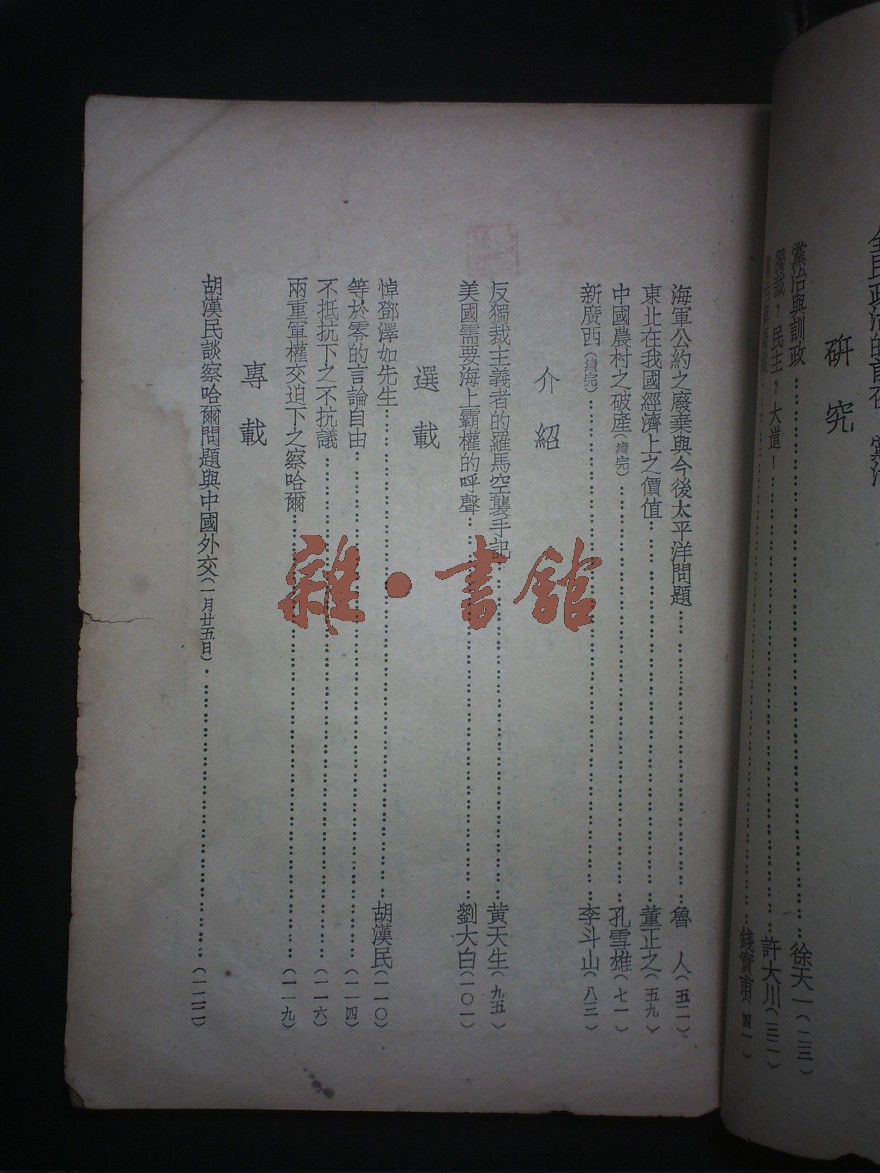 研究
黨治與訓政……徐天一(二三)
獨裁？民主？大道！……許大川(三二)
錢實甫(四一)
海軍公約之廢棄與今後太平洋問題……魯人(五二)
東北在我國經濟上之價值……董正之(五九)
中國農村之破產(續完)……孔雪雄(七一)
新廣西(續完)……李斗山(八三)
介紹
反獨裁主義者的羅馬空襲手記……黃天生(九五)
美國需要海上霸權的呼聲……劉大白(一〇一)
選載
悼鄧澤如先生……胡漢民(一一〇)
等於零的言論自由……(一一四)
不抵抗下之不抗議……(一一六)
兩重軍權交迫下之察哈爾……(一一九)
專載
胡漢民談察哈爾問題與中國外交(一月廿五日)……(一二二)
雜·書館